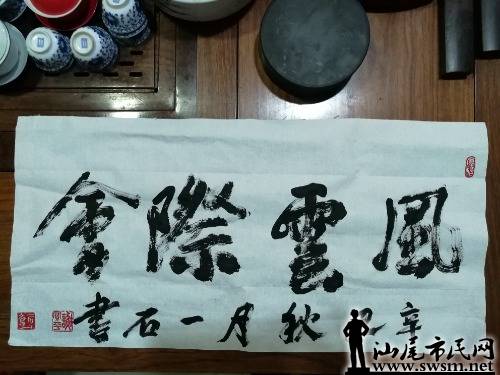 風雲際會
辛丑秋月一石書
汕尾市民网
www.swsm.net